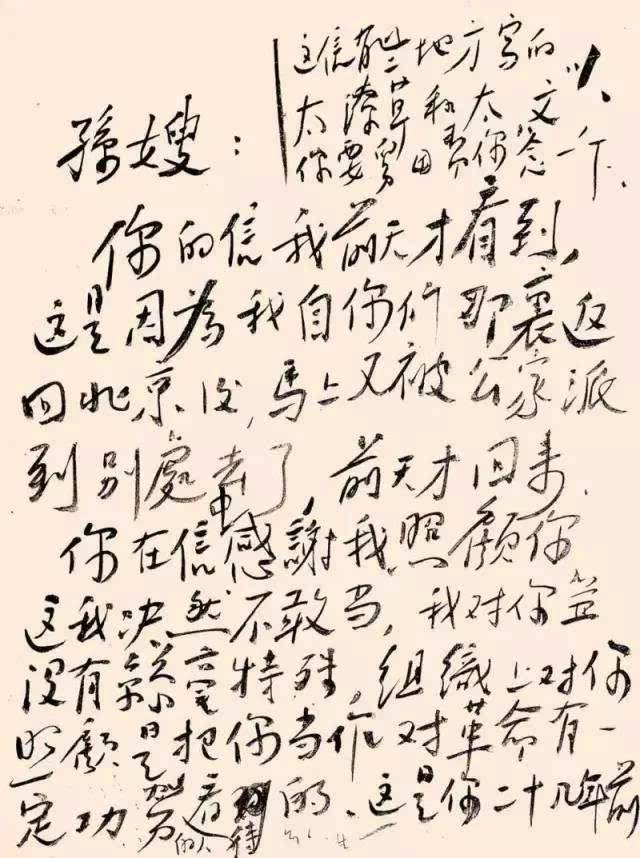 这信有些地方写的
太潦草和太文
你要田帮你念一下.
孫嫂：
你的信我前天才看到，
这是因為我自你们那裏返
回北京没,馬上又被公家派
到别處去了，前天才回来.
你在信中感謝我照顧你
这我决然不敢当，我对你並
没有丝毫特殊，组織上对你
照顧是把你当作对革命有一
定功劳的人看待的、这是你二十几年前